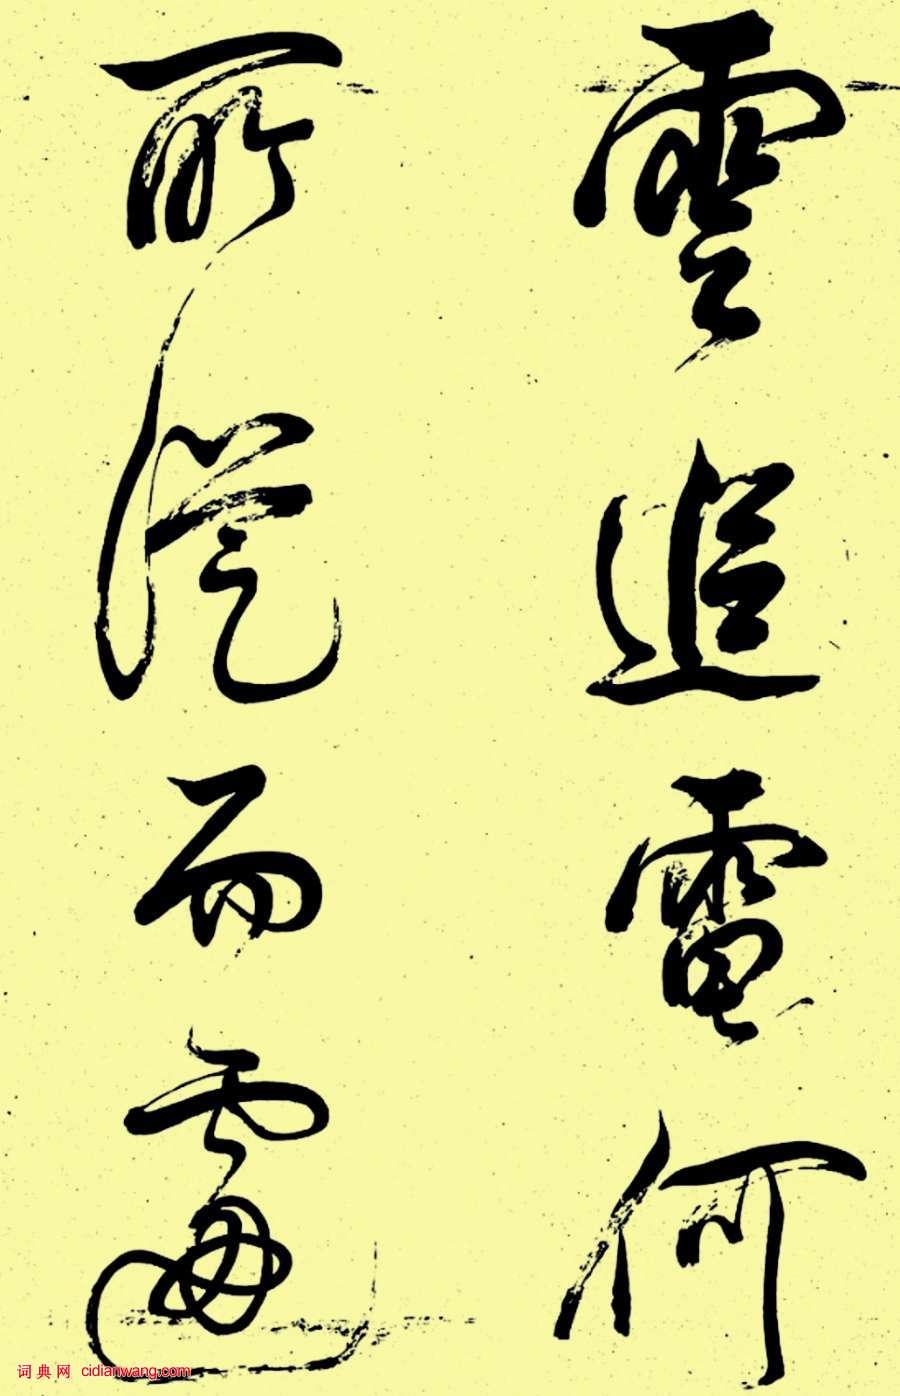 雲追電何
所從而遽
词典网 cidianwang.com